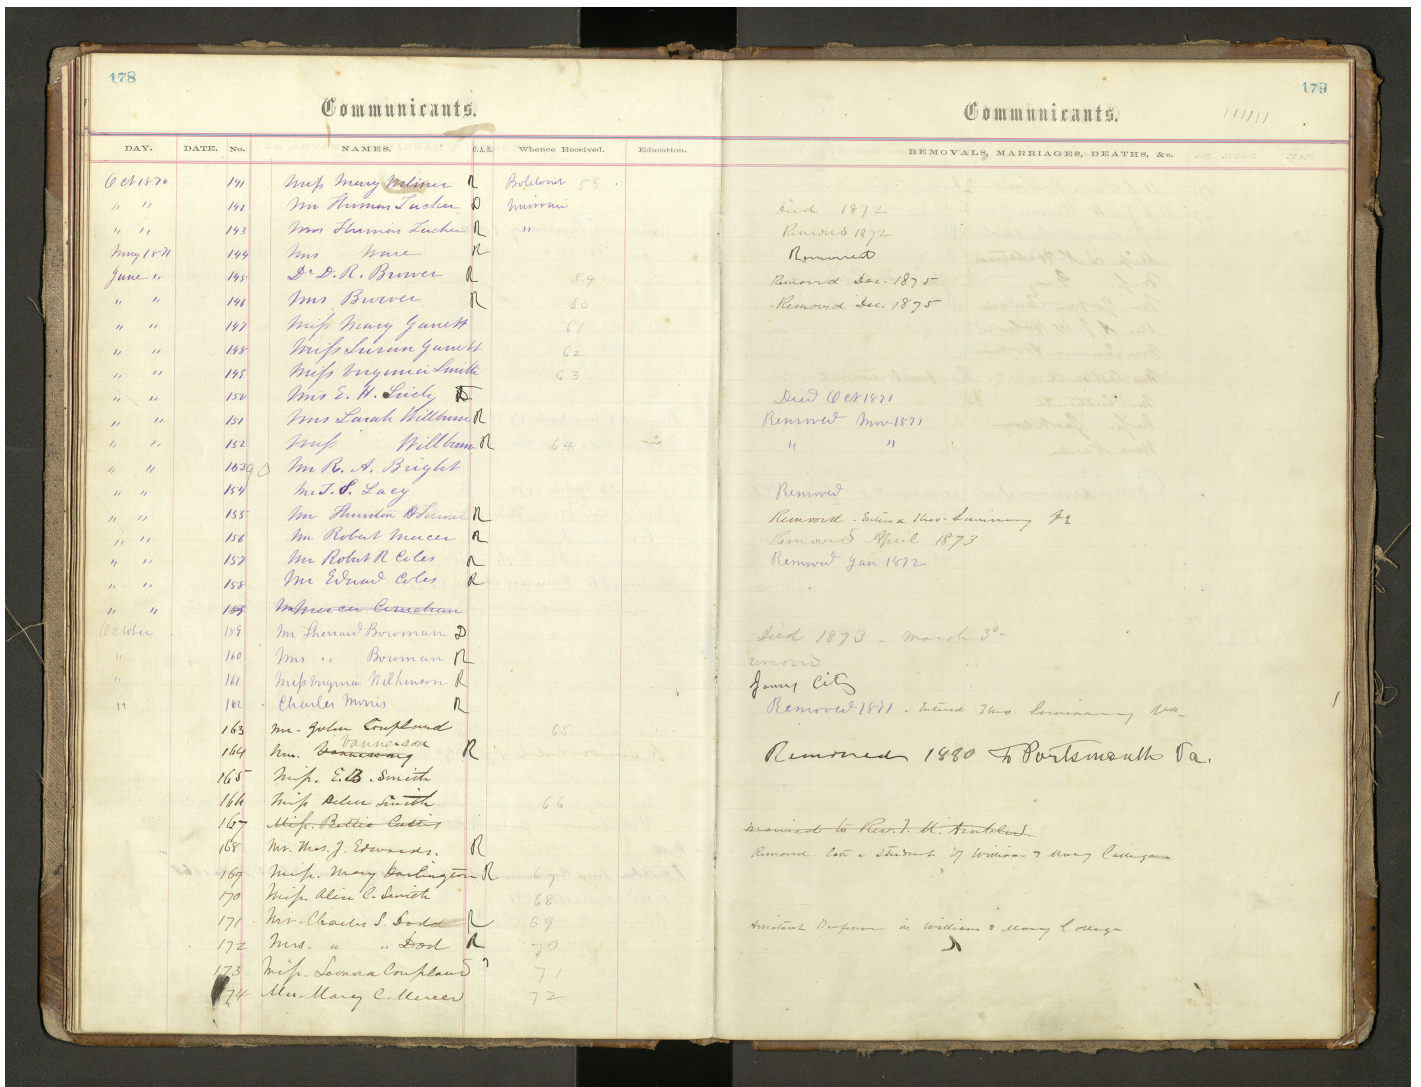 178
Communicants.
DAY. DATE. No. NAMES. C.A.R. Whence Received. Education.
Oct 1870 141 Miss Mary Miliner R 58
" " 142 Mr Thomas Tucker D Missouri
" " 143 Mrs Thomas Tucker R "
May 1871 144 Mrs Ware R
June " 145 Dr D. R. Brower R 59
" " 146 Mrs Brower R 60
" " 147 Miss Mary Garrett 61
" " 148 Miss Susan Garrett 62
" " 149 Miss Virginia Smith 63
" " 150 Mrs E. H. Lively D
" " 151 Mrs Sarah Willburn R
" " 152 Miss Willburn R 64
" " 153 90 Mr R. A. Bright
" " 154 Mr T. S. Lacy
" " 155 Mr R
" " 156 Mr Robert Mercer R
" " 157 Mr Robert R Coles R
" " 158 Mr Edward Coles R
" " 159 Mercer
October 159 Mr Sherrard Bowman D
" 160 Mrs " Bowman R
" 161 Miss Virginia Wilkinson R
" 162 Charles Morris R
163 Mr. John Coupland 65
164 Mrs. Vannerson R
165 Miss. E. B. Smith
166 Miss Helen Smith 66
167 Miss. Bettie Curtis
168 Mr. Thos. J. Edwards. R
169 Miss. Mary Darlington R 67
170 Miss Alice C. Smith 68
171 Mr. Charles S. Dodd R 69
172 Mrs. " " Dod R 70
173 Miss. Leonora Coupland 71
174 Mrs. Mary C. Mercer 72
179
Communicants.
REMOVALS, MARRIAGES, DEATHS, &c.
Died 1872
Removed 1872
Removed
Removed Dec. 1875
Removed Dec. 1875
Died Oct 1871
Removed Nov 1871
" "
Removed
Removed. Entered Theo. Seminary Va
Removed April 1873
Removed Jan 1872
Died 1873 - March 3d
removed
James City
Removed 1871. Entered Theo. Seminary Va.
Removed 1880 To Portsmouth Va.
Married to Rev. J. M. Ambler
Removed. Late a Student of William & Mary College
Assistant Professor in William & Mary College